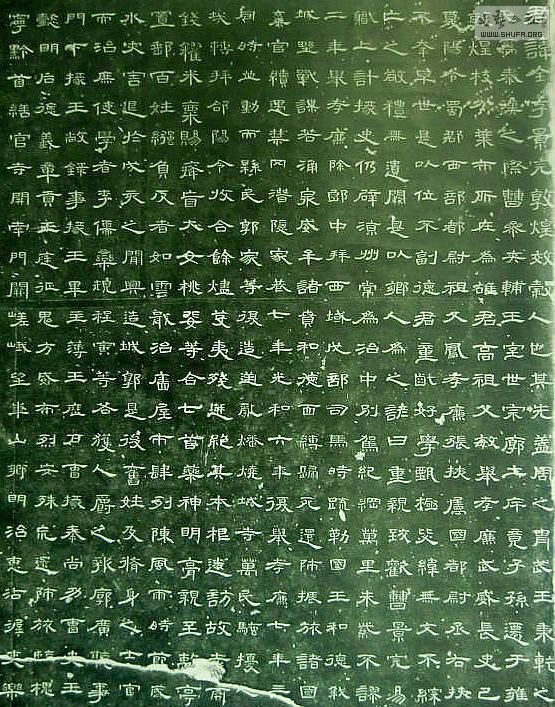 君諱全字景完敦煌效穀人也其先蓋周之胄武王秉乾之
焉秦漢之際曹參夾輔王室世宗廓土斥竟子孫遷于雍
煌枝分葉布所在為雄君高祖父敏舉孝廉武威長史巴
夏陽令蜀郡西部都尉祖父鳳孝廉張掖屬國都尉丞右扶
不幸早世是以位不副德君童齔好學甄極毖緯無文不綜
亡之敬禮無遺闕是以鄉人為之諺曰重親致歡曹景完易
職上計掾史仍辟涼州常為治中別駕紀綱萬里朱紫不謬
二年舉孝廉除郎中拜西域戊部司馬時疏勒國王和德弒
城野戰謀若涌泉威牟諸賁和德面縛歸死還師振旅諸國
棄官續遇禁冈潛隱家巷七年光和六年復舉孝廉七年三
同時並動而縣民郭家等復造逆亂燔燒城寺萬民騷擾
哉轉拜郃陽令收合餘燼芟夷殘迸絕其本根遂訪故老商
錢糴米粟賜癃盲大女桃婓等合七首藥神明膏親至離亭
置郵百姓繈負反者如雲戢治廧屋市肆列陳風雨時節歲
水灾害退於戊亥之間興造城郭是後舊姓及脩身之士官
而治庶使學者李儒欒規程寅等各獲人爵之報廓廣聽事
門下掾王敞錄事掾王畢主簿王歷戶曹掾秦尚功曹史王
懿明后德義章貢王庭征鬼方威布烈安殊荒還師旅臨槐
寧黔首繕官寺開南門闕嵯峨望華山鄉明治惠沾渥吏樂
WWW.SHUFA.ORG